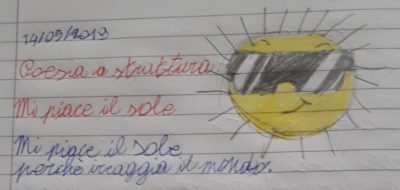 14/05/2019
Poesia a struttura
Mi piace il sole
Mi piace il sole
perchè irraggia il mondo.